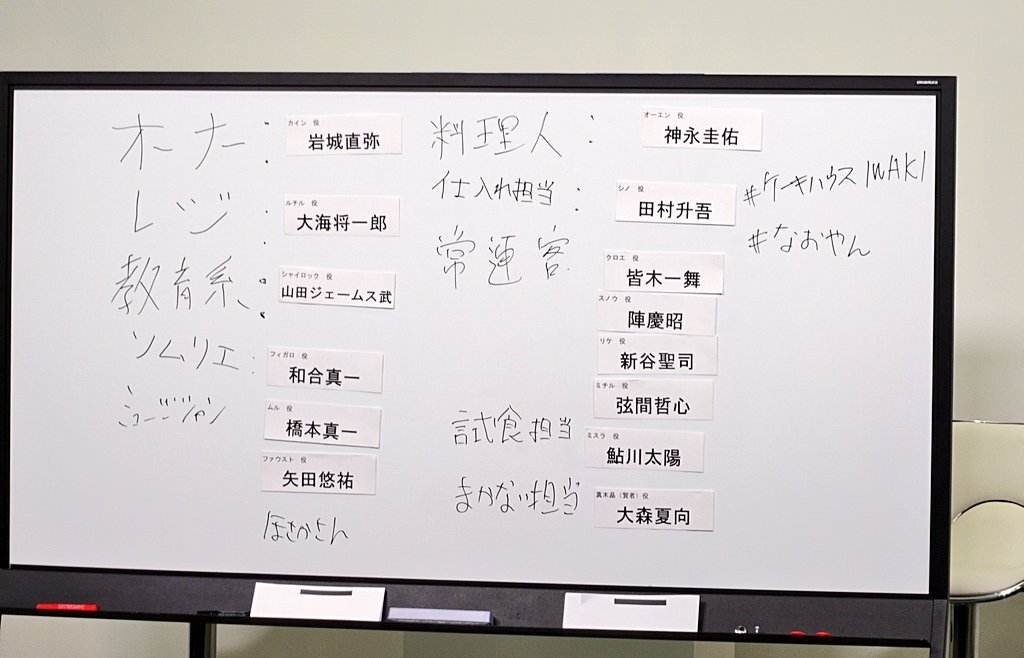 オーナー：
カイン 役
岩城直弥
レジ：
ルチル 役
大海将一郎
教育系：
シャイロック 役
山田ジェームス武
ソムリエ：
フィガロ 役
和合真一
ミュージシャン
ムル 役
橋本真一
ファウスト 役
矢田悠祐
ほさかさん
料理人：
オーエン 役
神永圭佑
仕入れ担当：
シノ 役
田村升吾
常連客
クロエ 役
皆木一舞
スノウ 役
陣慶昭
リケ 役
新谷聖司
ミチル 役
弦間哲心
試食担当
ミスラ 役
鮎川太陽
まかない担当
真木晶（賢者）役
大森夏向
#ケーキハウスIWAKI
#なおやん